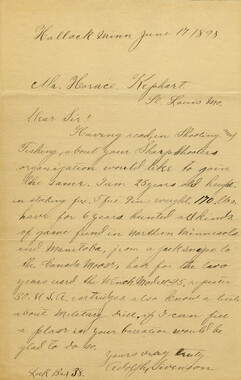 Hallock Minn June 17 1898.
Mr. Horace Kephart.
St. Louis Mo.
Dear Sir!
Having read, in Shooting and
Fishing, about your Sharpshooters
organization would like to join
the same. I am 23 years old height
in stocking feet 5 weight 170 lbs.
have for 6 years hunted all kinds
of game found in northern Minnesota
and Manitoba, from a jack snipe to
the Canada Moose, have for the two
years used the Winch Model
50. U.S.A. cartridges also know a little
about Military drill, if I can find
a place in your organization would be
glad to do so.
Yours very truly
Adolph Swenson
Lock Box 35.